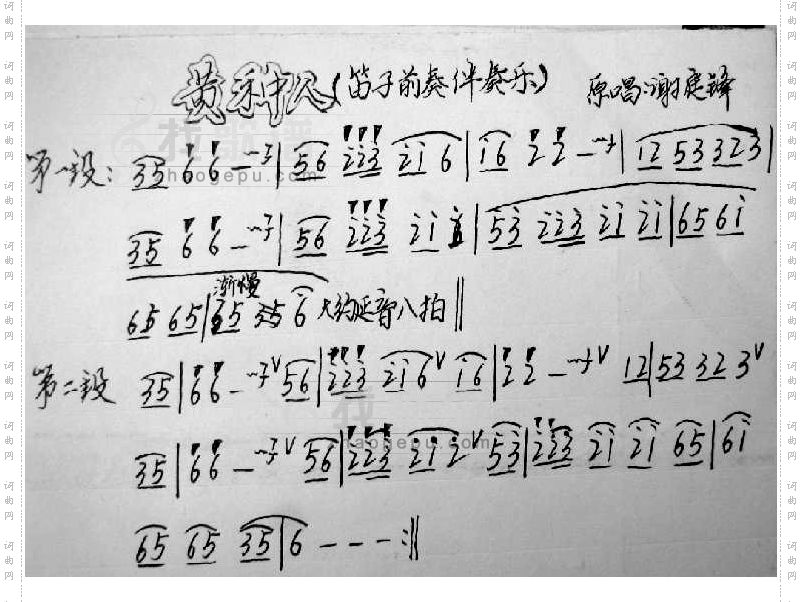 黄种人(笛子前奏伴奏乐) 原唱:谢霆锋
第一段: 35 6 6 — | 56 223 21 6 | 16 2 2 — | 12 53 323 |
35 6 6 — | 56 223 21 | 53 223 21 21 | 65 61
渐慢
65 65 | 35 35 6 大约延音八拍 ||
第二段 35 | 6 6 — V 56 | 223 216 V 16 | 2 2 — V 12 | 53 32 3 V
35 | 6 6 — V 56 | 223 212 V 53 | 223 21 21 65 | 61
65 65 35 | 6 - - - :||
找歌谱
zhaogepu.com
词曲网